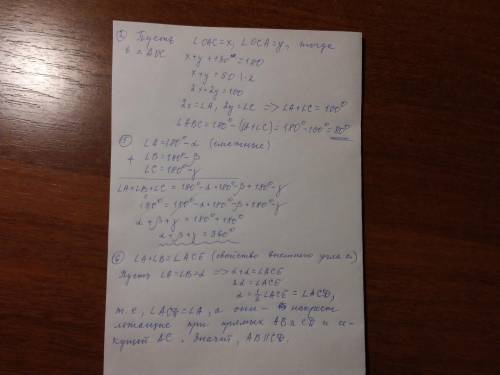 Пусть ∠OAC=x, ∠OCA=y, тогда
в △AOC
x+y+130°=180
x+y=50 |·2
2x+2y=100
2x=∠A, 2y=∠C => ∠A+∠C=100°
∠ABC=180°-(∠A+∠C)=180°-100°=80°
⑤ ∠A=180°-α (смежные)
+ ∠B=180°-β
∠C=180°-γ
∠A+∠B+∠C=180°-α+180°-β+180°-γ
180°=180°-α+180°-β+180°-γ
α+β+γ=180°+180°
α+β+γ=360°
⑥ ∠A+∠B=∠ACE (свойство внешнего угла)
Пусть ∠A=∠B=α => α+α=∠ACE
2α=∠ACE
α=½∠ACE=∠ACD,
т.е. ∠ACD=∠A, а они - накрест
лежащие при прямых AB и CD и се-
кущей AC. Значит, AB||CD.